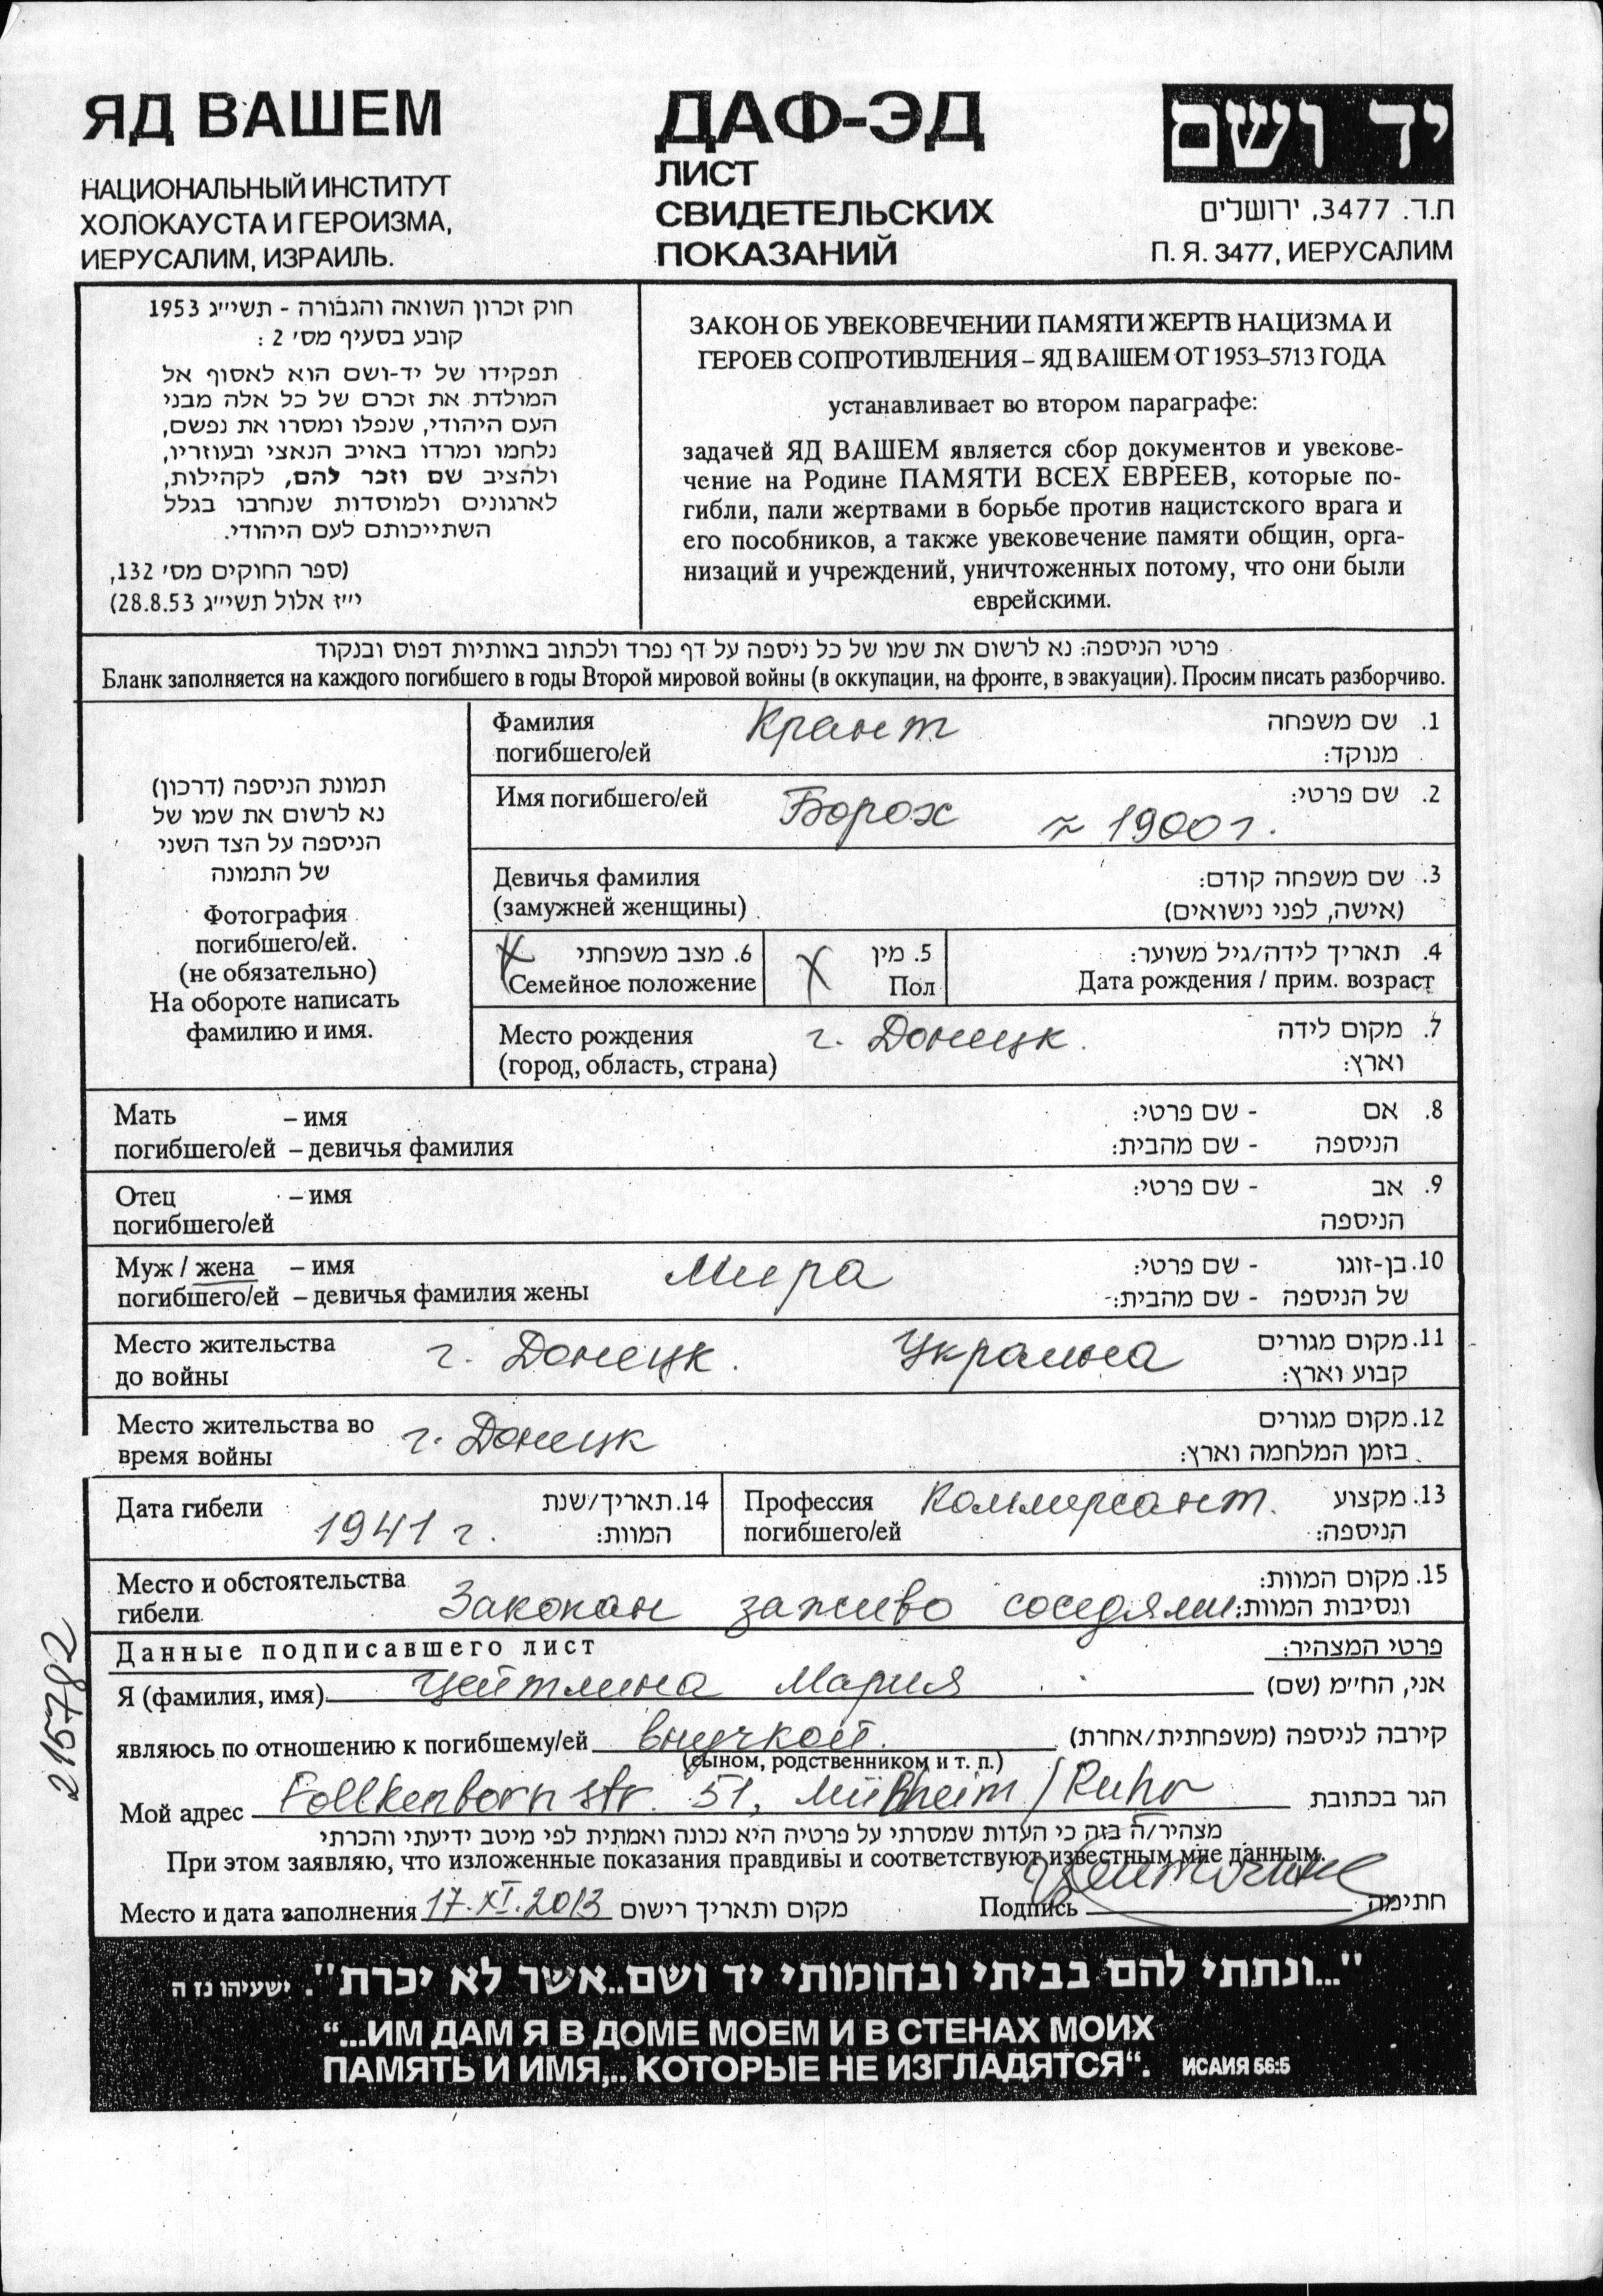 ЯД ВАШЕМ
НАЦИОНАЛЬНЫЙ ИНСТИТУТ
ХОЛОКАУСТА И ГЕРОИЗМА,
ИЕРУСАЛИМ, ИЗРАИЛЬ.
ДАФ-ЭД
ЛИСТ
СВИДЕТЕЛЬСКИХ
ПОКАЗАНИЙ
יד ושם
ת.ד. 3477, ירושלים
П. Я. 3477, ИЕРУСАЛИМ
חוק זכרון השואה והגבורה - תשי״ג 1953
קובע בסעיף מס׳ 2 :
תפקידו של יד-ושם הוא לאסוף אל
המולדת את זכרם של כל אלה מבני
העם היהודי, שנפלו ומסרו את נפשם,
נלחמו ומרדו באויב הנאצי ובעוזריו,
ולהציב שם וזכר להם, לקהילות,
לארגונים ולמוסדות שנחרבו בגלל
השתייכותם לעם היהודי.
(ספר החוקים מס׳ 132,
י״ז אלול תשי״ג 28.8.53)
ЗАКОН ОБ УВЕКОВЕЧЕНИИ ПАМЯТИ ЖЕРТВ НАЦИЗМА И
ГЕРОЕВ СОПРОТИВЛЕНИЯ – ЯД ВАШЕМ ОТ 1953–5713 ГОДА
устанавливает во втором параграфе:
задачей ЯД ВАШЕМ является сбор документов и увекове-
чение на Родине ПАМЯТИ ВСЕХ ЕВРЕЕВ, которые по-
гибли, пали жертвами в борьбе против нацистского врага и
его пособников, а также увековечение памяти общин, орга-
низаций и учреждений, уничтоженных потому, что они были
еврейскими.
פרטי הניספה: נא לרשום את שמו של כל ניספה על דף נפרד ולכתוב באותיות דפוס ובנקוד
Бланк заполняется на каждого погибшего в годы Второй мировой войны (в оккупации, на фронте, в эвакуации). Просим писать разборчиво.
תמונת הניספה (דרכון)
נא לרשום את שמו של
הניספה על הצד השני
של התמונה
Фотография
погибшего/ей.
(не обязательно)
На обороте написать
фамилию и имя.
Фамилия Крант 1. שם משפחה
погибшего/ей מנוקד:
Имя погибшего/ей Борох ≈ 1900 г. 2. שם פרטי:
Девичья фамилия 3. שם משפחה קודם:
(замужней женщины) (אישה, לפני נישואים)
X 6. מצב משפחתי X 5. מין 4. תאריך לידה/גיל משוער:
Семейное положение Пол Дата рождения / прим. возраст
Место рождения г. Донецк. 7. מקום לידה
(город, область, страна) וארץ:
Мать – имя 8. אם - שם פרטי:
погибшего/ей – девичья фамилия הניספה - שם מהבית:
Отец – имя 9. אב - שם פרטי:
погибшего/ей הניספה
Муж / жена – имя Мира 10. בן-זוגו - שם פרטי:
погибшего/ей – девичья фамилия жены של הניספה - שם מהבית:-
Место жительства г. Донецк. Украина 11. מקום מגורים
до войны קבוע וארץ:
Место жительства во г. Донецк 12. מקום מגורים
время войны בזמן המלחמה וארץ:
Дата гибели 1941 г. 14. תאריך/שנת Профессия Коммерсант. 13. מקצוע
המוות: погибшего/ей הניספה:
Место и обстоятельства 15. מקום המוות:
гибели Закопан заживо соседями ונסיבות המוות:
Данные подписавшего лист פרטי המצהיר:
Я (фамилия, имя) Цейтлина Мария אני, הח״מ (שם)
являюсь по отношению к погибшему/ей внучкой. קירבה לניספה (משפחתית/אחרת)
(сыном, родственником и т. п.)
Мой адрес Follkenbornstr. 51, Mülheim / Ruhr הגר בכתובת
מצהיר/ה בזה כי העדות שמסרתי על פרטיה היא נכונה ואמתית לפי מיטב ידיעתי והכרתי
При этом заявляю, что изложенные показания правдивы и соответствуют известным мне данным.
Место и дата заполнения 17.XI.2013 מקום ותאריך רישום Подпись חתימה
215782
"...ונתתי להם בביתי ובחומותי יד ושם..אשר לא יכרת". ישעיהו נז ה
“...ИМ ДАМ Я В ДОМЕ МОЕМ И В СТЕНАХ МОИХ
ПАМЯТЬ И ИМЯ,.. КОТОРЫЕ НЕ ИЗГЛАДЯТСЯ“. ИСАИЯ 56:5